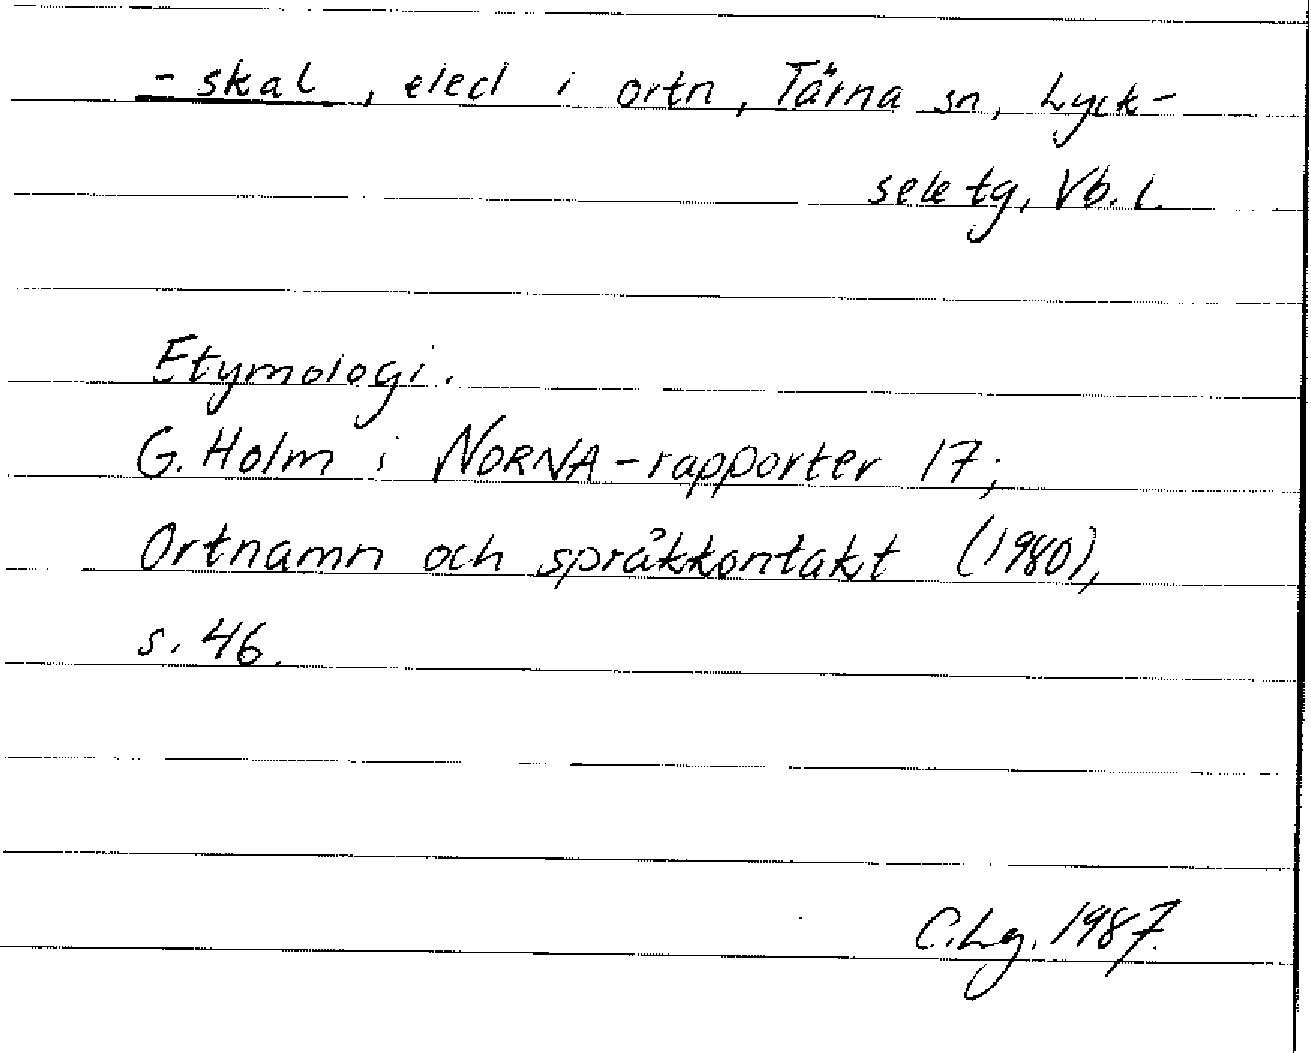 -skal, efled i ortn, Tärna sn, Lyck-
sele tg, Vb. l.
Etymologi.
G. Holm i NORNA-rapporter 17;
Ortnamn och språkkontakt (1980),
s. 46.
C.Lg. 1987.